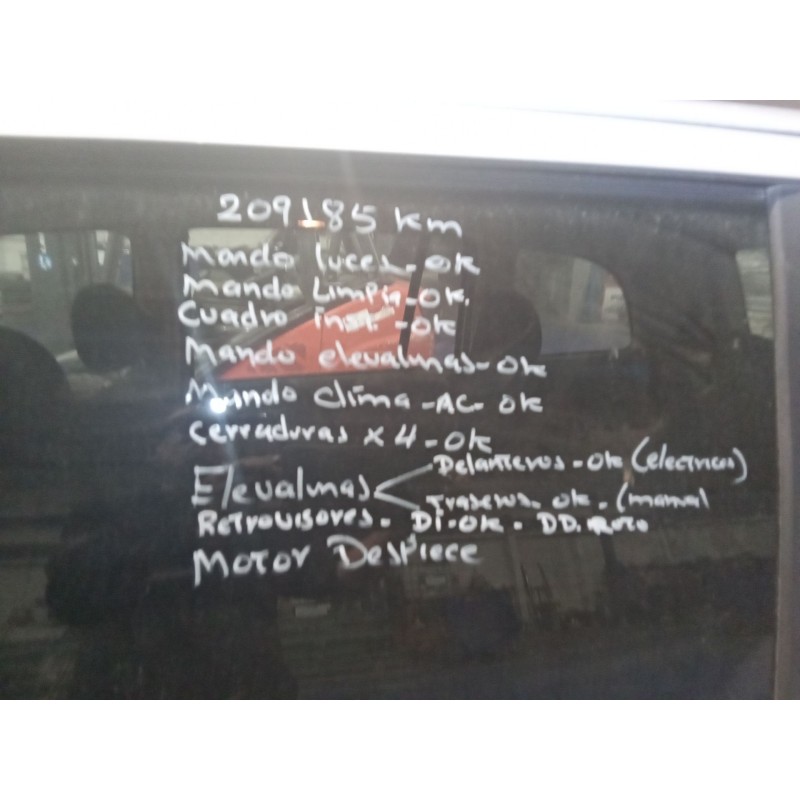 209185 km
Mando luces - ok
Mando Limpia - ok.
Cuadro inst. - ok
Mando elevalunas - ok
Mando clima - AC - ok
Cerraduras x 4 - ok
Delanteros - ok (electricos)
Elevalunas
Traseros - ok - (manual
Retrovisores - DI - ok - DD. Roto
Motor Despiece